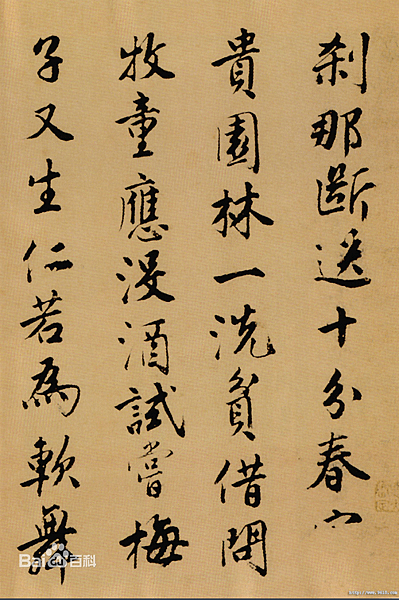 刹那斷送十分春
貴園林一洗貧借問
牧童應沒酒試嘗梅
子又生仁若爲軟舞
Bai百科